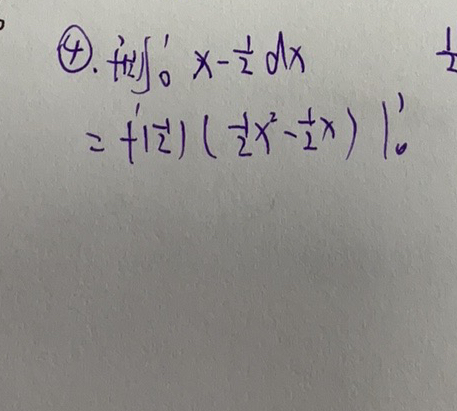 ④. f'(½)∫₀¹ x - ½ dx ½
= f'(½) (½x² - ½x) |₀¹